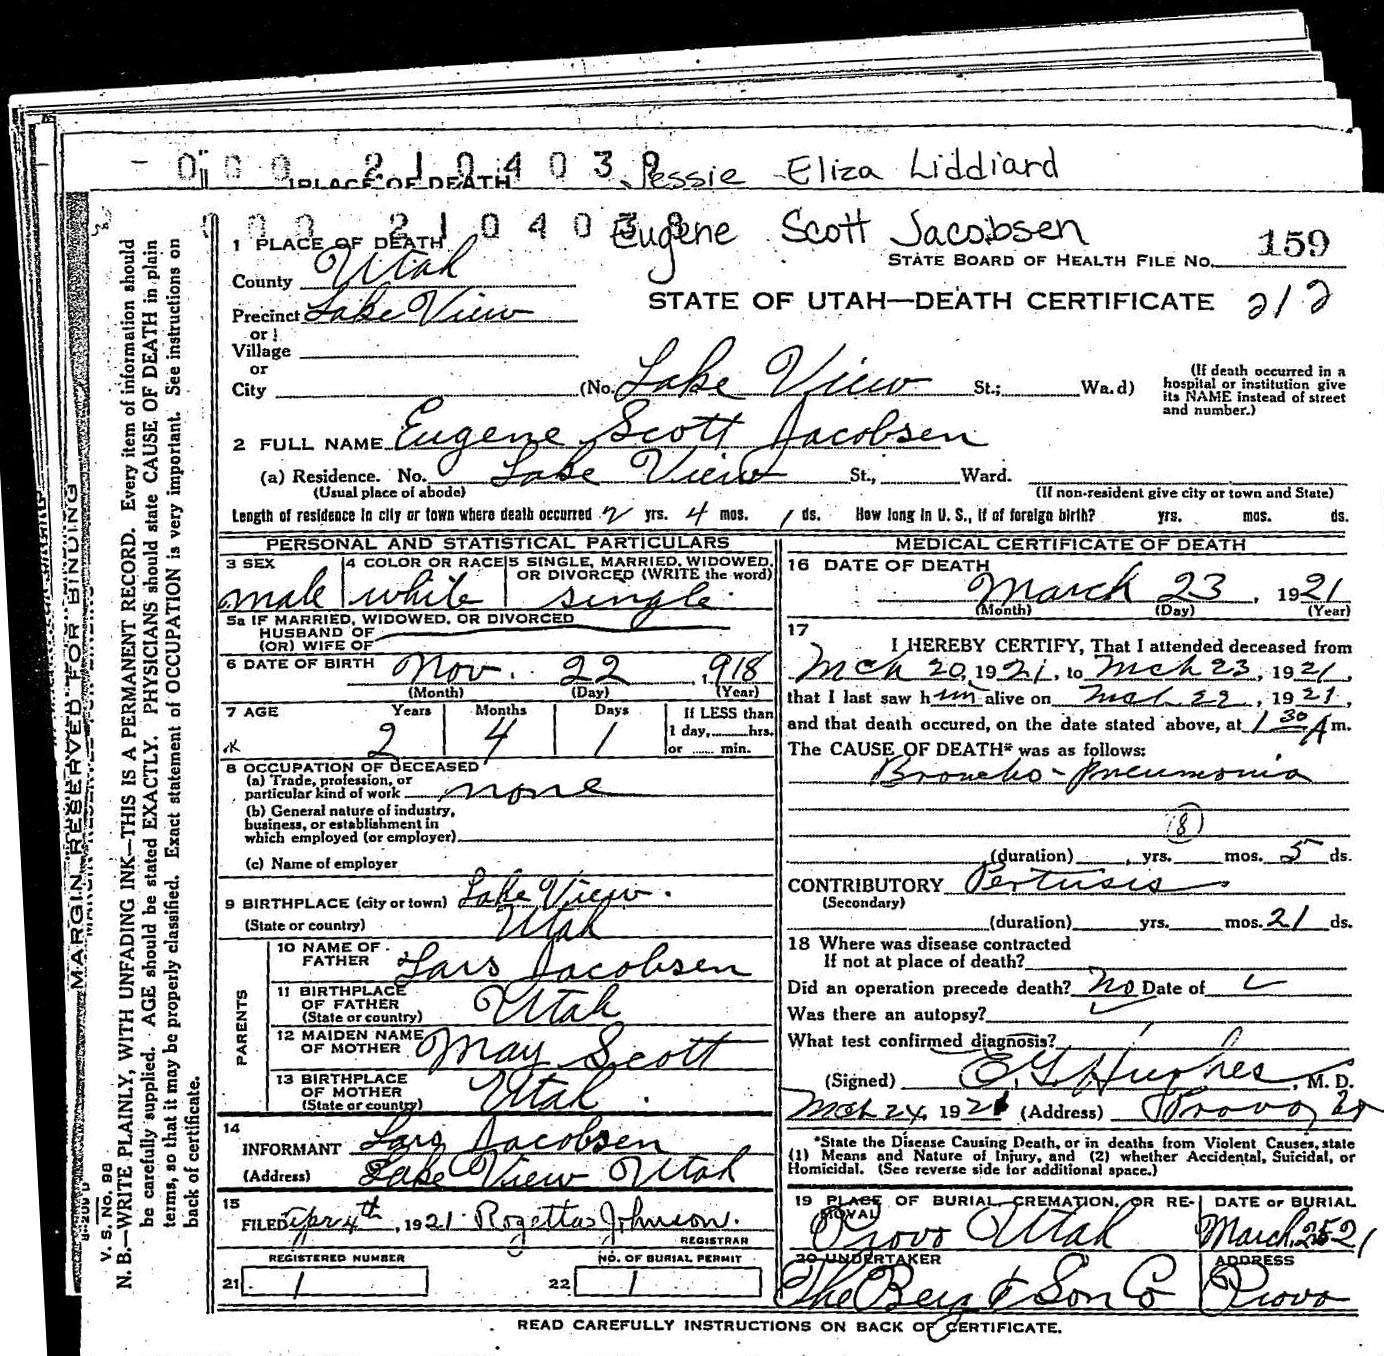 0 0 0 2 1 0 4 0 3 9 Jessie Eliza Liddiard
PLACE OF DEATH
0 0 2 1 0 4 0 3 9 Eugene Scott Jacobsen
1 PLACE OF DEATH
STATE BOARD OF HEALTH FILE No. 159
County Utah
STATE OF UTAH—DEATH CERTIFICATE 212
Precinct Lake View
or
Village
or
City (No. Lake View St.; Wa.d)
(If death occurred in a
hospital or institution give
its NAME instead of street
and number.)
2 FULL NAME Eugene Scott Jacobsen
(a) Residence. No. Lake View St., Ward.
(Usual place of abode) (If non-resident give city or town and State)
Length of residence in city or town where death occurred 2 yrs. 4 mos. 1 ds. How long in U. S., if of foreign birth? yrs. mos. ds.
PERSONAL AND STATISTICAL PARTICULARS
3 SEX 4 COLOR OR RACE 5 SINGLE, MARRIED, WIDOWED,
OR DIVORCED (WRITE the word)
male white single
5a IF MARRIED, WIDOWED, OR DIVORCED
HUSBAND OF
(OR) WIFE OF
6 DATE OF BIRTH Nov. 22, 918
(Month) (Day) (Year)
7 AGE Years Months Days If LESS than
1 day, hrs.
or min.
2 4 1
8 OCCUPATION OF DECEASED
(a) Trade, profession, or
particular kind of work none
(b) General nature of industry,
business, or establishment in
which employed (or employer)
(c) Name of employer
9 BIRTHPLACE (city or town) Lake View.
(State or country) Utah
PARENTS
10 NAME OF
FATHER Lars Jacobsen
11 BIRTHPLACE
OF FATHER
(State or country) Utah
12 MAIDEN NAME
OF MOTHER May Scott
13 BIRTHPLACE
OF MOTHER
(State or country) Utah
14
INFORMANT Lars Jacobsen
(Address) Lake View Utah
15
FILED Apr 4th, 1921 Rogetta Johnson.
REGISTRAR
REGISTERED NUMBER NO. OF BURIAL PERMIT
21 1 22 1
MEDICAL CERTIFICATE OF DEATH
16 DATE OF DEATH
March 23, 1921
(Month) (Day) (Year)
17
I HEREBY CERTIFY, That I attended deceased from
Mch 20, 1921, to Mch 23, 1921,
that I last saw him alive on Mch 22, 1921,
and that death occured, on the date stated above, at 1 30 A m.
The CAUSE OF DEATH* was as follows:
Broncho-Pneumonia
(8)
(duration) yrs. mos. 5 ds.
CONTRIBUTORY Pertusis
(Secondary)
(duration) yrs. mos. 21 ds.
18 Where was disease contracted
If not at place of death?
Did an operation precede death? No Date of
Was there an autopsy?
What test confirmed diagnosis?
(Signed) E G Hughes, M. D.
Mch 24, 1921 (Address) Provo
*State the Disease Causing Death, or in deaths from Violent Causes, state
(1) Means and Nature of Injury, and (2) whether Accidental, Suicidal, or
Homicidal. (See reverse side for additional space.)
19 PLACE OF BURIAL, CREMATION, OR RE-
MOVAL DATE OF BURIAL
Provo Utah March, 25 21
20 UNDERTAKER ADDRESS
The Berg & Son Co Provo
READ CAREFULLY INSTRUCTIONS ON BACK OF CERTIFICATE.
MARGIN RESERVED FOR BINDING
V. S. No. 98
N. B.—WRITE PLAINLY, WITH UNFADING INK—THIS IS A PERMANENT RECORD. Every item of information should
be carefully supplied. AGE should be stated EXACTLY. PHYSICIANS should state CAUSE OF DEATH in plain
terms, so that it may be properly classified. Exact statement of OCCUPATION is very important. See instructions on
back of certificate.